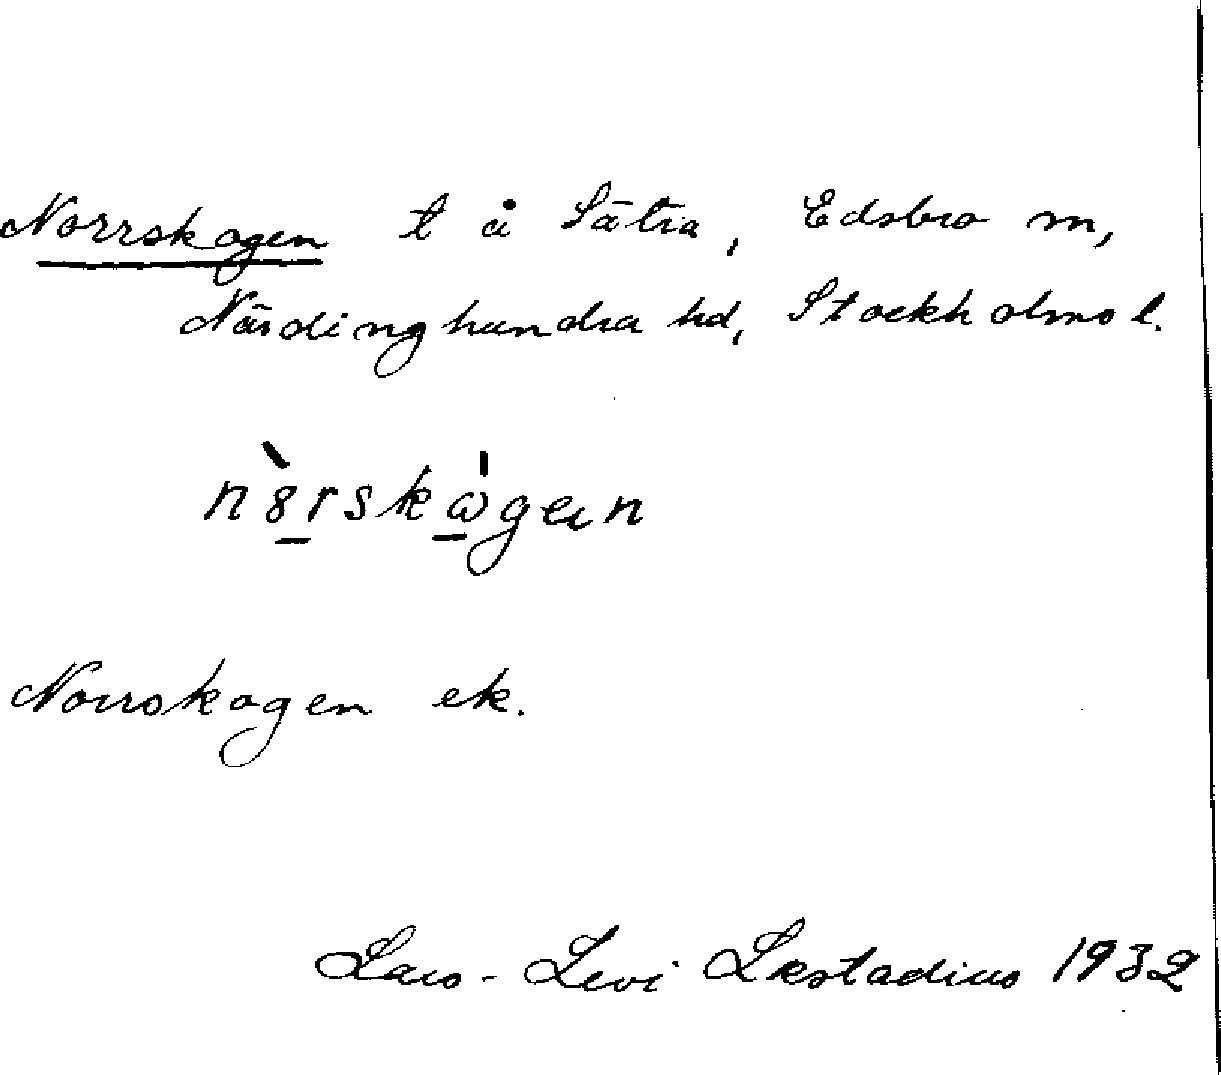 Norrskogen t å Sätra, Edsbro sn,
Närdinghundra hd, Stockholms l.
nòrskωgen
Norrskogen ek.
Lars-Levi Læstadius 1932